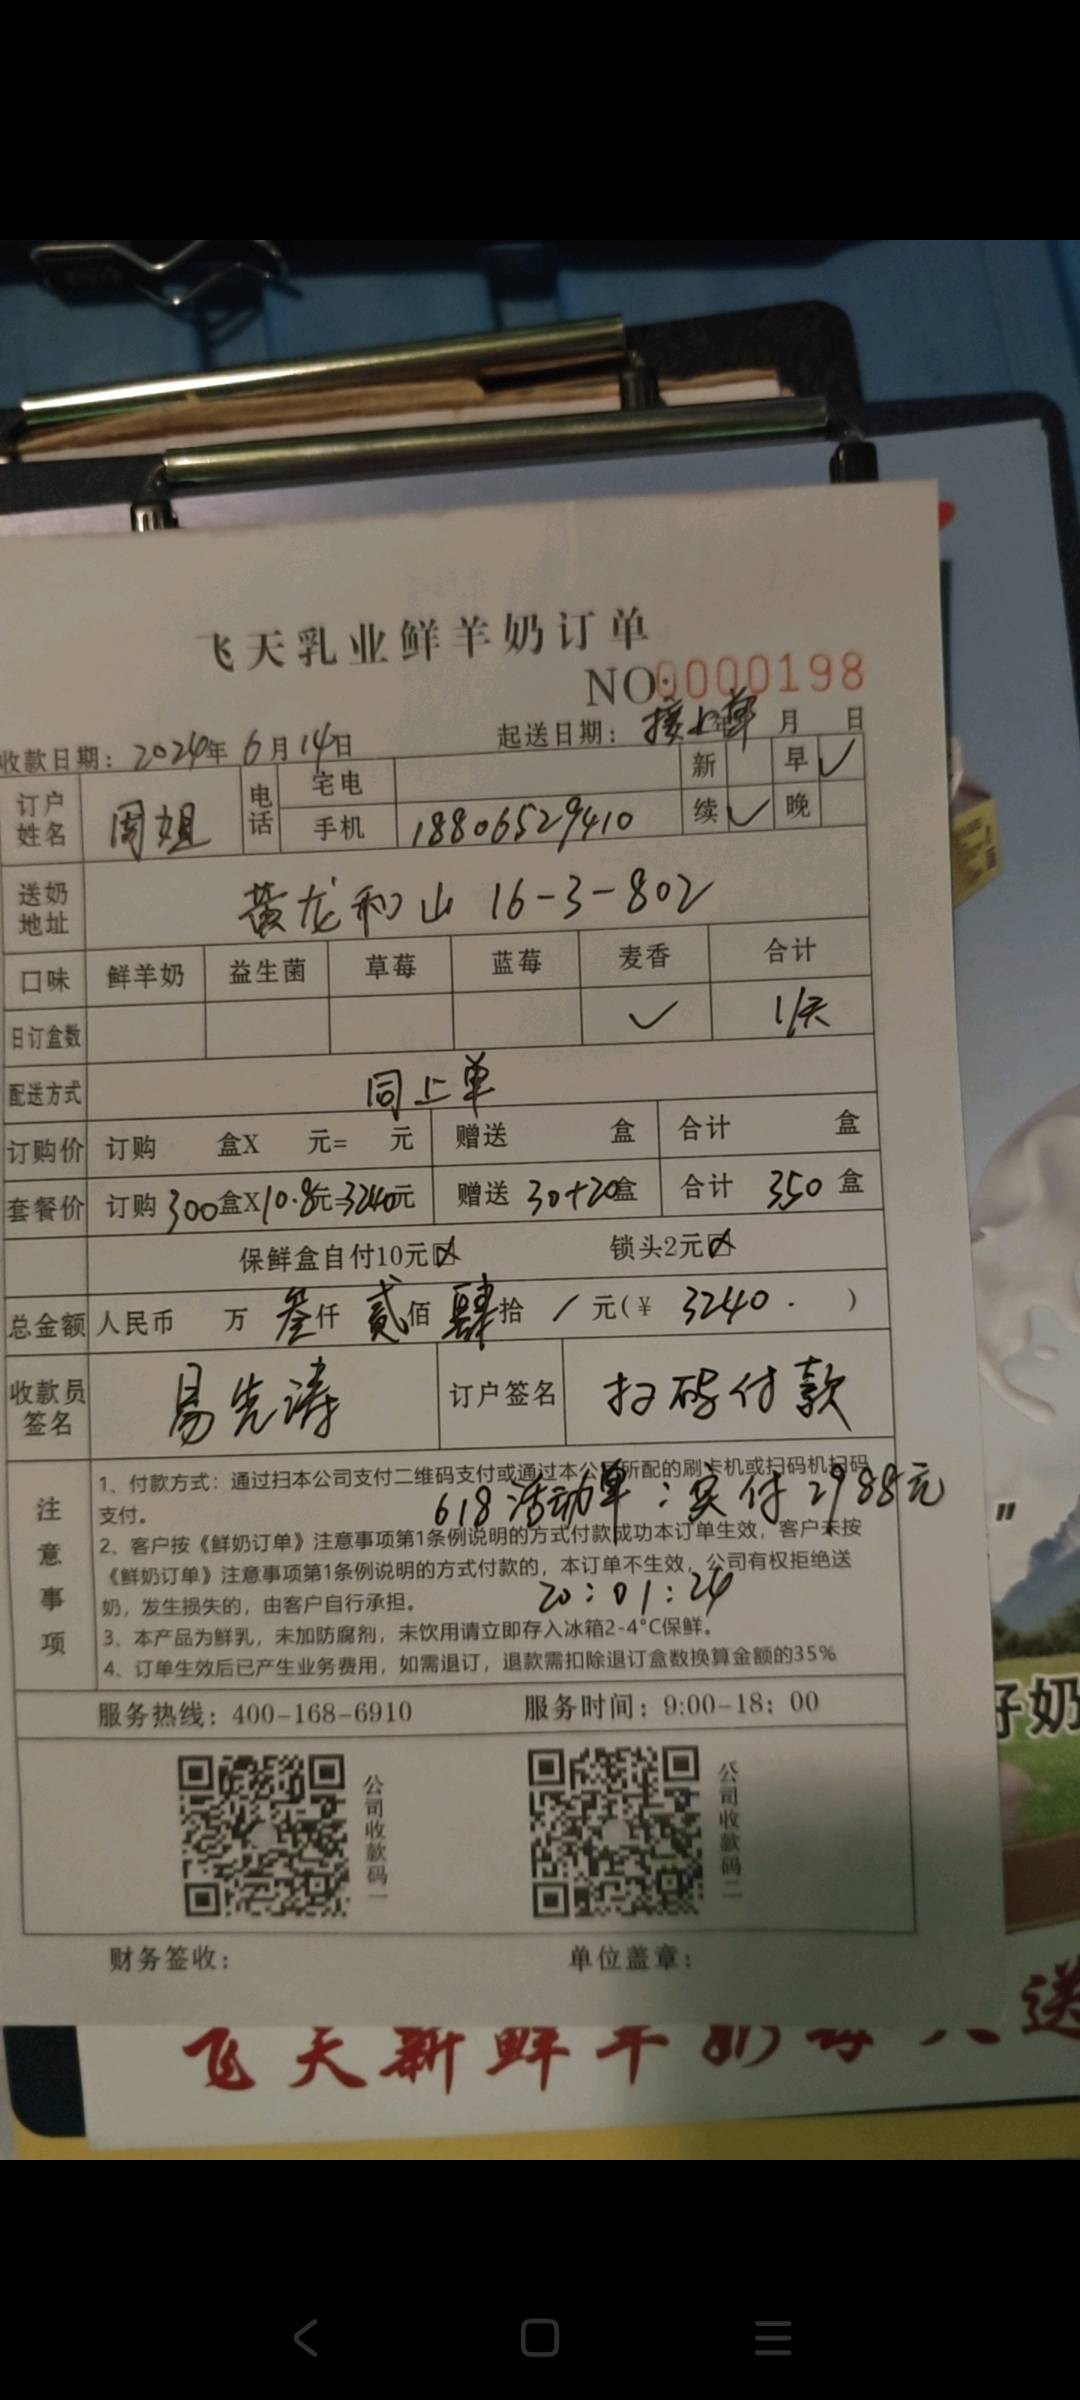 飞天乳业鲜羊奶订单
NO.0000198
收款日期：2024年6月14日 起送日期：接上单 年 月 日
订户姓名 周姐 电话 宅电 新 早 ✓
手机 18806529410 续 ✓ 晚
送奶地址 黄龙和山 16-3-802
口味 鲜羊奶 益生菌 草莓 蓝莓 麦香 合计
日订盒数 ✓ 1/天
配送方式 同上单
订购价 订购 盒X 元= 元 赠送 盒 合计 盒
套餐价 订购 300盒X10.8元=3240元 赠送 30+20盒 合计 350 盒
保鲜盒自付10元☒ 锁头2元☒
总金额 人民币 万 叁仟 贰佰 肆拾 / 元(¥ 3240. )
收款员签名 易先涛 订户签名 扫码付款
注意事项
1、付款方式：通过扫本公司支付二维码支付或通过本公司所配的刷卡机或扫码机扫码
支付。
618活动单：实付2988元
2、客户按《鲜奶订单》注意事项第1条例说明的方式付款成功本订单生效，客户未按
《鲜奶订单》注意事项第1条例说明的方式付款的，本订单不生效，公司有权拒绝送
奶，发生损失的，由客户自行承担。
20:01:24
3、本产品为鲜乳，未加防腐剂，未饮用请立即存入冰箱2-4°C保鲜。
4、订单生效后已产生业务费用，如需退订，退款需扣除退订盒数换算金额的35%
服务热线：400-168-6910 服务时间：9:00-18：00
公司收款码一 公司收款码二
财务签收： 单位盖章：
好奶
飞天新鲜羊奶每天送